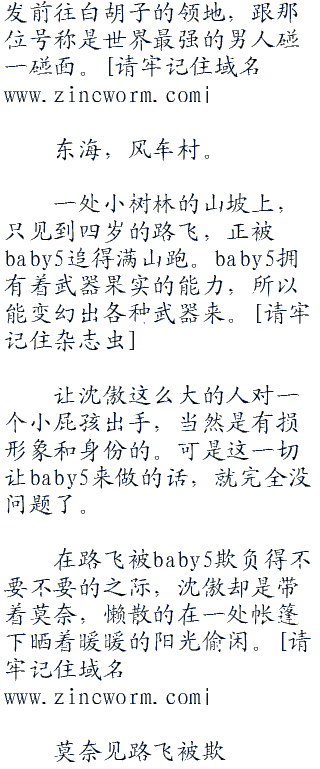 发前往白胡子的领地，跟那
位号称是世界最强的男人碰
一碰面。[请牢记住域名
www.zincworm.com|
东海，风车村。
一处小树林的山坡上，
只见到四岁的路飞，正被
baby5追得满山跑。baby5拥
有着武器果实的能力，所以
能变幻出各种武器来。[请牢
记住杂志虫]
让沈傲这么大的人对一
个小屁孩出手，当然是有损
形象和身份的。可是这一切
让baby5来做的话，就完全没
问题了。
在路飞被baby5欺负得不
要不要的之际，沈傲却是带
着莫奈，懒散的在一处帐篷
下晒着暖暖的阳光偷闲。[请
牢记住域名
www.zincworm.com|
莫奈见路飞被欺